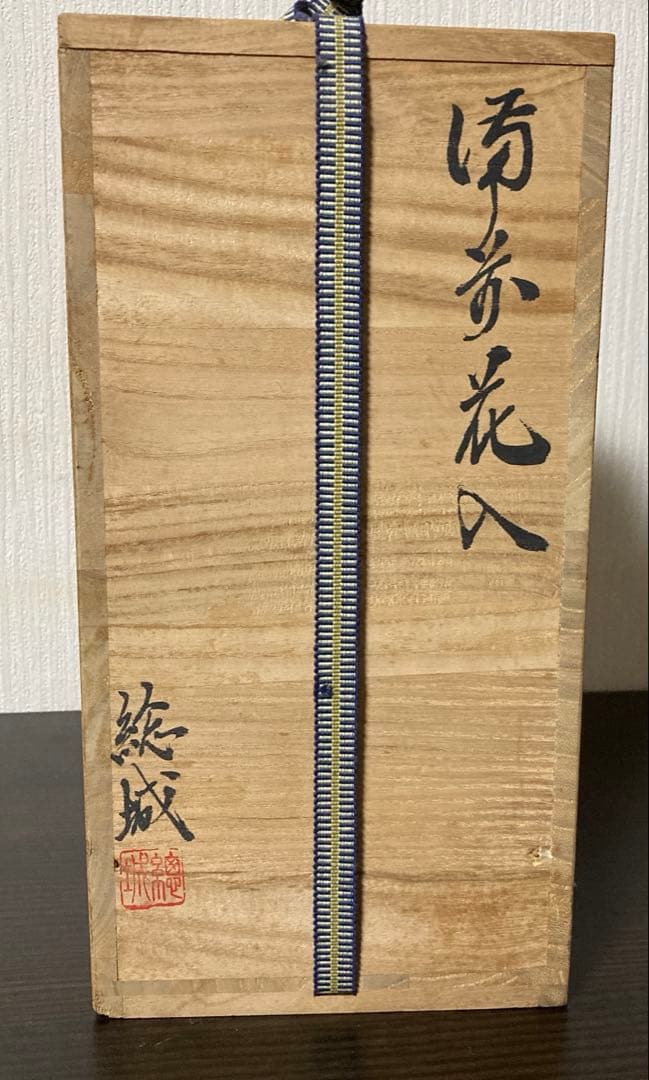 備前花入
総城
總城